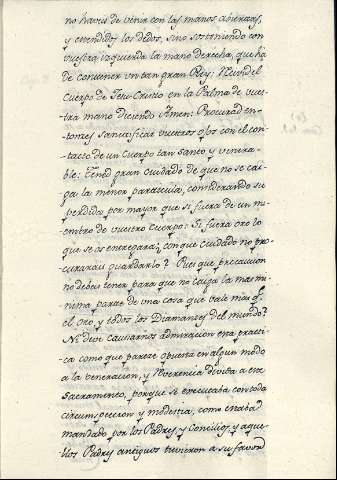 no haveis de venir con las manos abiertas,
y estendidos los dedos, sino sosteniendo con
vuestra izquierda la mano derecha, que ha
de contener un tan gran Rey: Recivid el
Cuerpo de Jesu-Cristo en la Palma de vues-
tra mano diciendo Amen: Procurad en-
tonzes santificar vuestros ojos con el con-
tacto de un Cuerpo tan santo y venera-
ble: Tened gran cuidado de que no se cai-
ga la menor particula, considerando su
perdida por mayor que si fuera de un mi-
embro de vuestro cuerpo: Si fuera oro lo
que se os entregara, con que cuidado no pro-
curarais guardarlo? Pues que precaucion
no debeis tener para que no caiga la mas mi-
nima parte de una cosa que vale mas q.e
el oro, y todos los Diamantes del mundo?
No deve causarnos admiracion esta practi-
ca como que parece opuesta en algun modo
a la veneracion, y Reverencia devida a este
Sacramento, porque se executaba con toda
circunspeccion y modestia, como estaba
mandado por los Padres y Concilios y aque-
llos Padres antiguos tuvieron a su favor